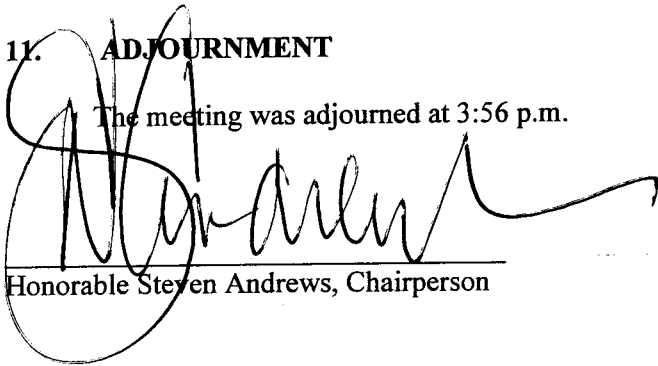 11. ADJOURNMENT
The meeting was adjourned at 3:56 p.m.
Honorable Steven Andrews, Chairperson